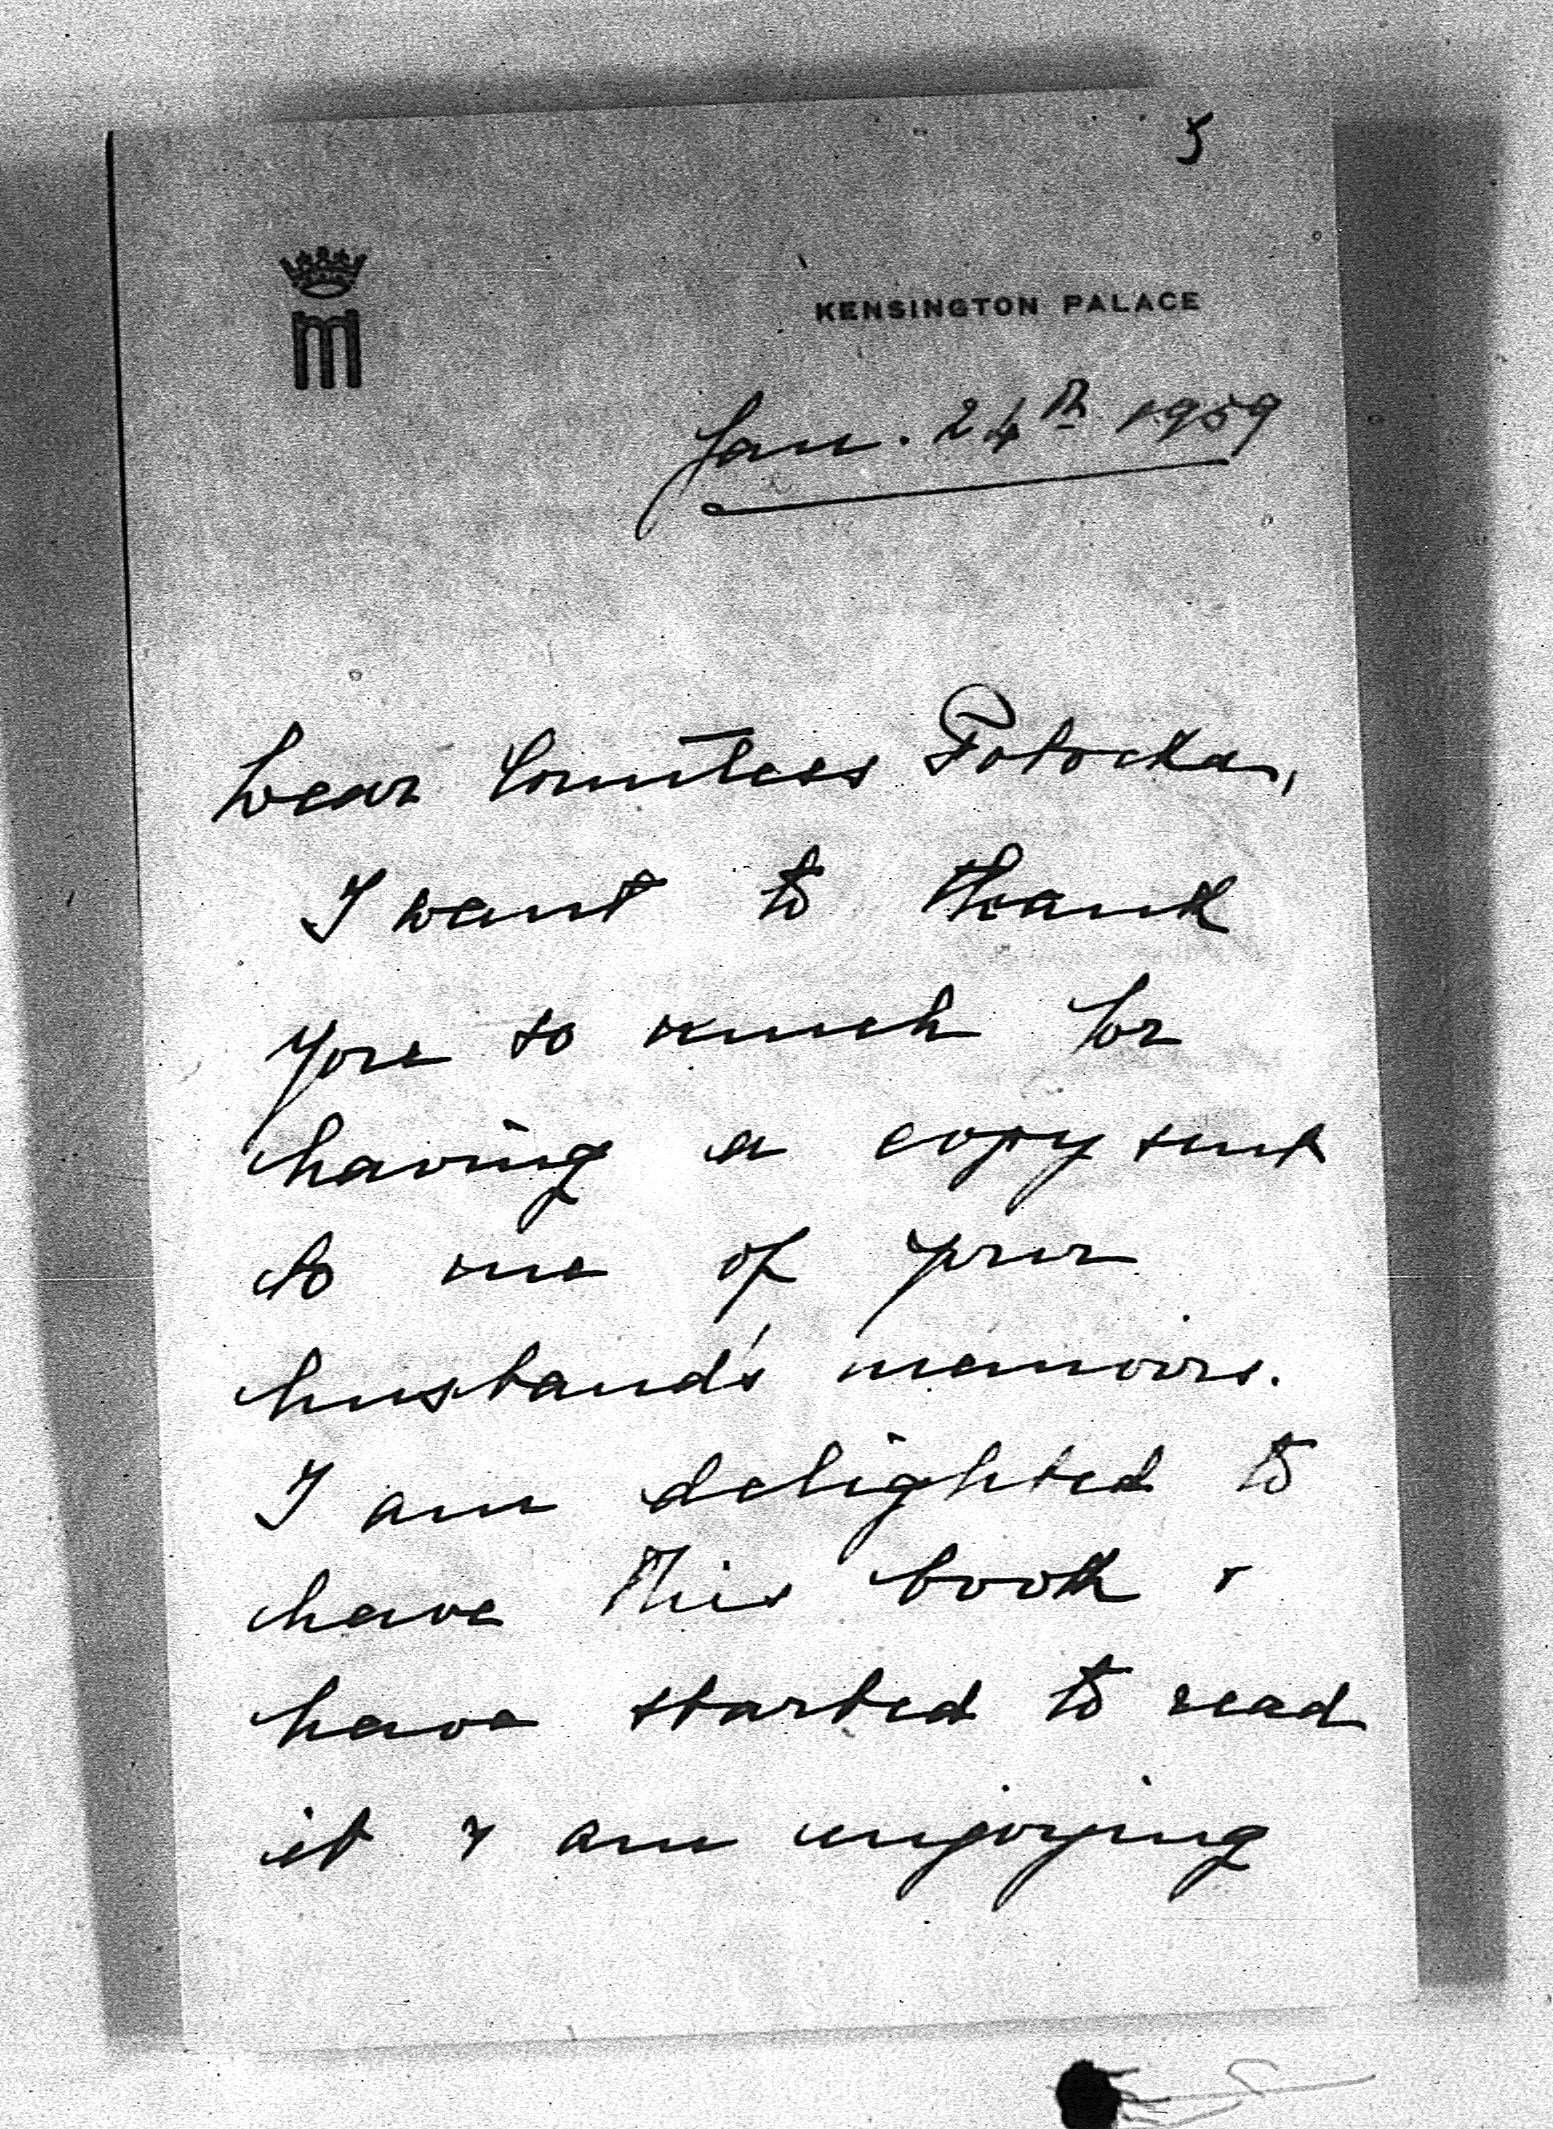 5
M
KENSINGTON PALACE
Jan. 24th 1959
Dear Countess Potocka,
I want to thank
you so much for
having a copy sent
to me of your
husband's memoirs.
I am delighted to
have this book &
have started to read
it & am enjoying